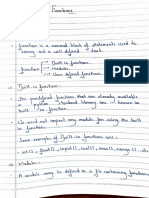 Functions
function is a named block of statements used to
carry out a well defined task
Built-in functions
function Modules
User defined functions.
Built-in functions:
The predefined functions that are already available
in Python standard library are known as
built-in functions.
We need not import any module for using the built
in functions.
Some example of Built-in functions are:
int(), float(), input(), eval(), max(), min(), abs
Modules:
A module may be defined as a file containing functions